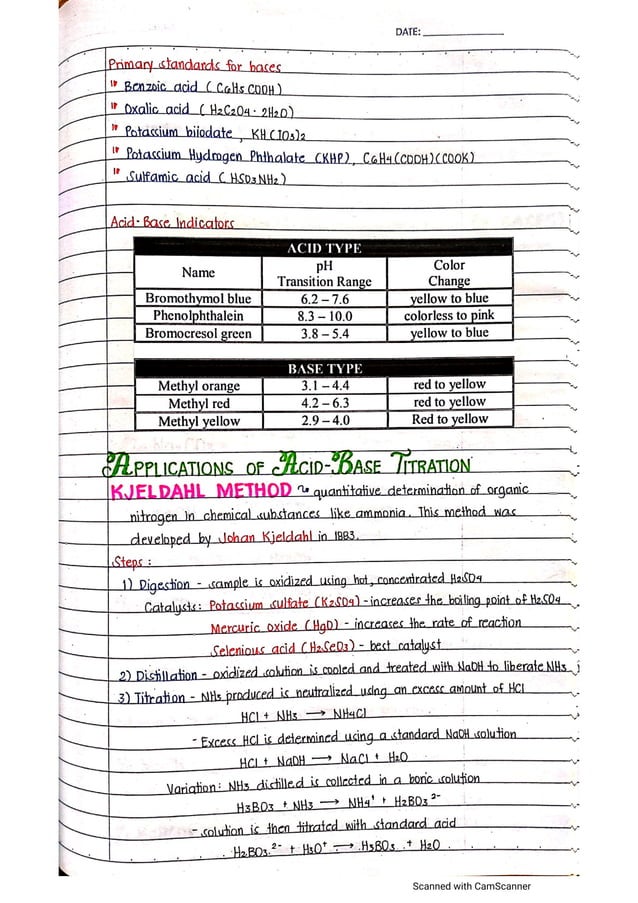 DATE:
Primary standards for bases
Benzoic acid (C6H5COOH)
Oxalic acid (H2C2O4 · 2H2O)
Potassium biiodate, KH(IO3)2
Potassium Hydrogen Phthalate (KHP), C6H4(COOH)(COOK)
Sulfamic acid (HSO3NH2)
Acid-Base Indicators
ACID TYPE
Name pH Transition Range Color Change
Bromothymol blue 6.2 – 7.6 yellow to blue
Phenolphthalein 8.3 – 10.0 colorless to pink
Bromocresol green 3.8 – 5.4 yellow to blue
BASE TYPE
Methyl orange 3.1 – 4.4 red to yellow
Methyl red 4.2 – 6.3 red to yellow
Methyl yellow 2.9 – 4.0 Red to yellow
APPLICATIONS OF ACID-BASE TITRATION
KJELDAHL METHOD ~ quantitative determination of organic
nitrogen in chemical substances like ammonia. This method was
developed by Johan Kjeldahl in 1883.
Steps:
1) Digestion - sample is oxidized using hot, concentrated H2SO4
Catalysts: Potassium sulfate (K2SO4) - increases the boiling point of H2SO4
Mercuric oxide (HgO) - increases the rate of reaction
Selenious acid (H2SeO3) - best catalyst
2) Distillation - oxidized solution is cooled and treated with NaOH to liberate NH3
3) Titration - NH3 produced is neutralized using an excess amount of HCl
HCl + NH3 → NH4Cl
- Excess HCl is determined using a standard NaOH solution
HCl + NaOH → NaCl + H2O
Variation: NH3 distilled is collected in a boric solution
H3BO3 + NH3 → NH4+ + H2BO3 2-
- solution is then titrated with standard acid
H2BO3 2- + H3O+ → H3BO3 + H2O
Scanned with CamScanner